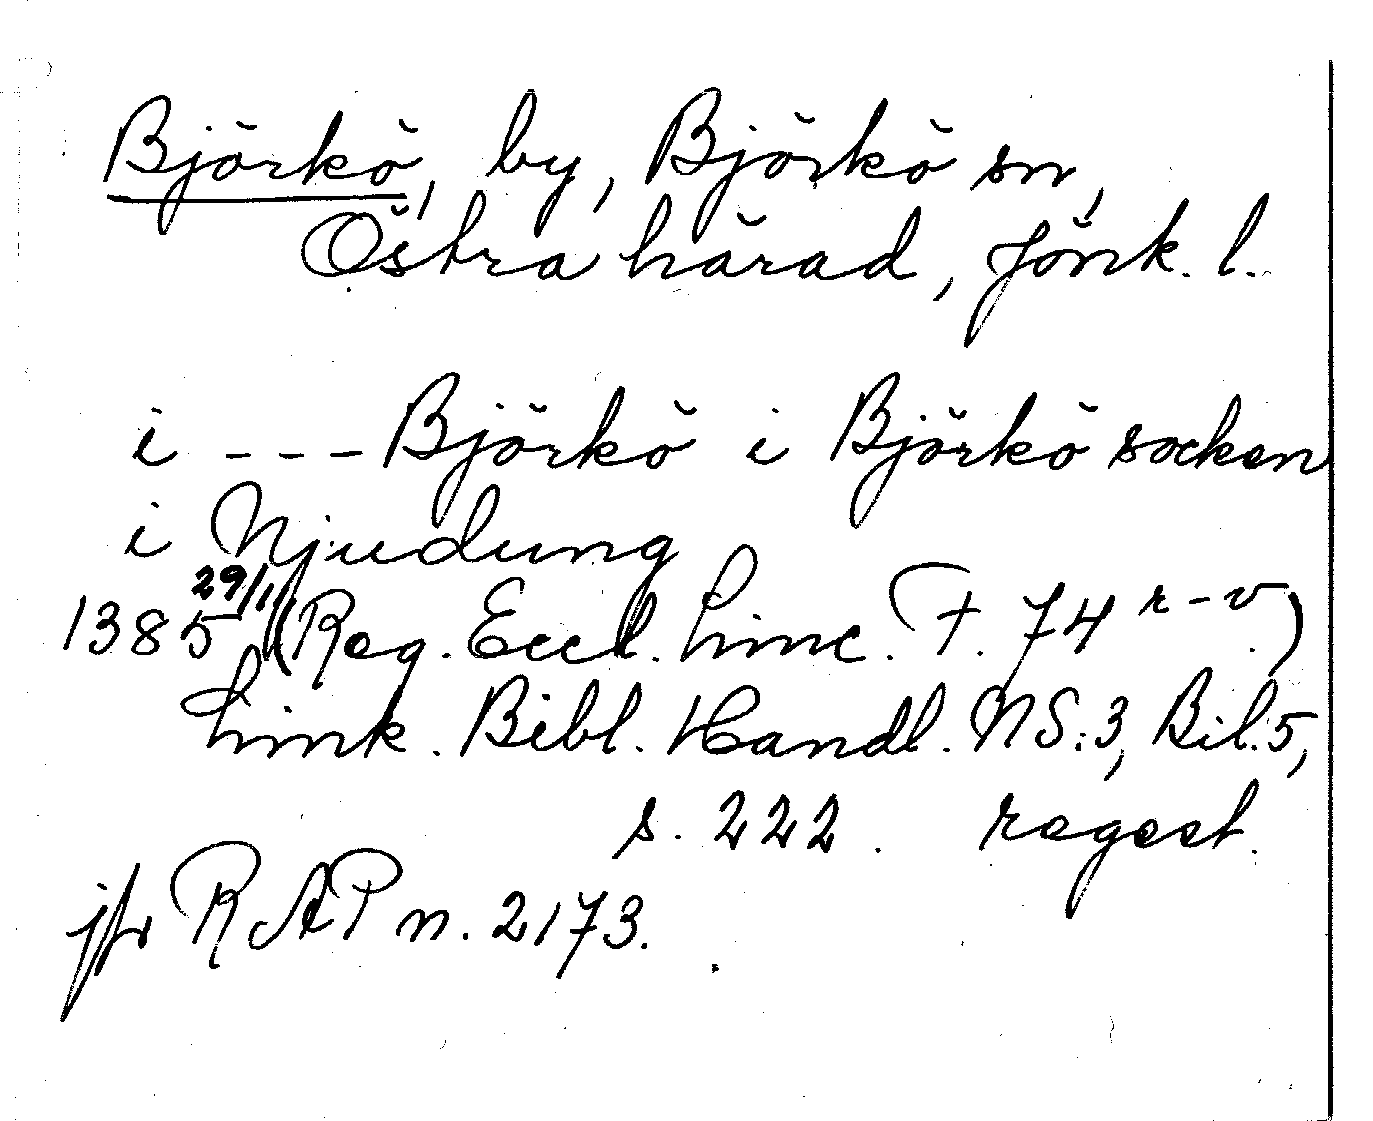 Björkö, by, Björkö sn,
Östra härad, Jönk. l.
i - - - Björkö i Björkö socken
i Njudung
1385 29/11 (Reg. Eccl. Linc. F. 74 r-v)
Link. Bibl. Handl. NS:3, Bil.5,
s. 222. regest.
jfr RAP n. 2173.